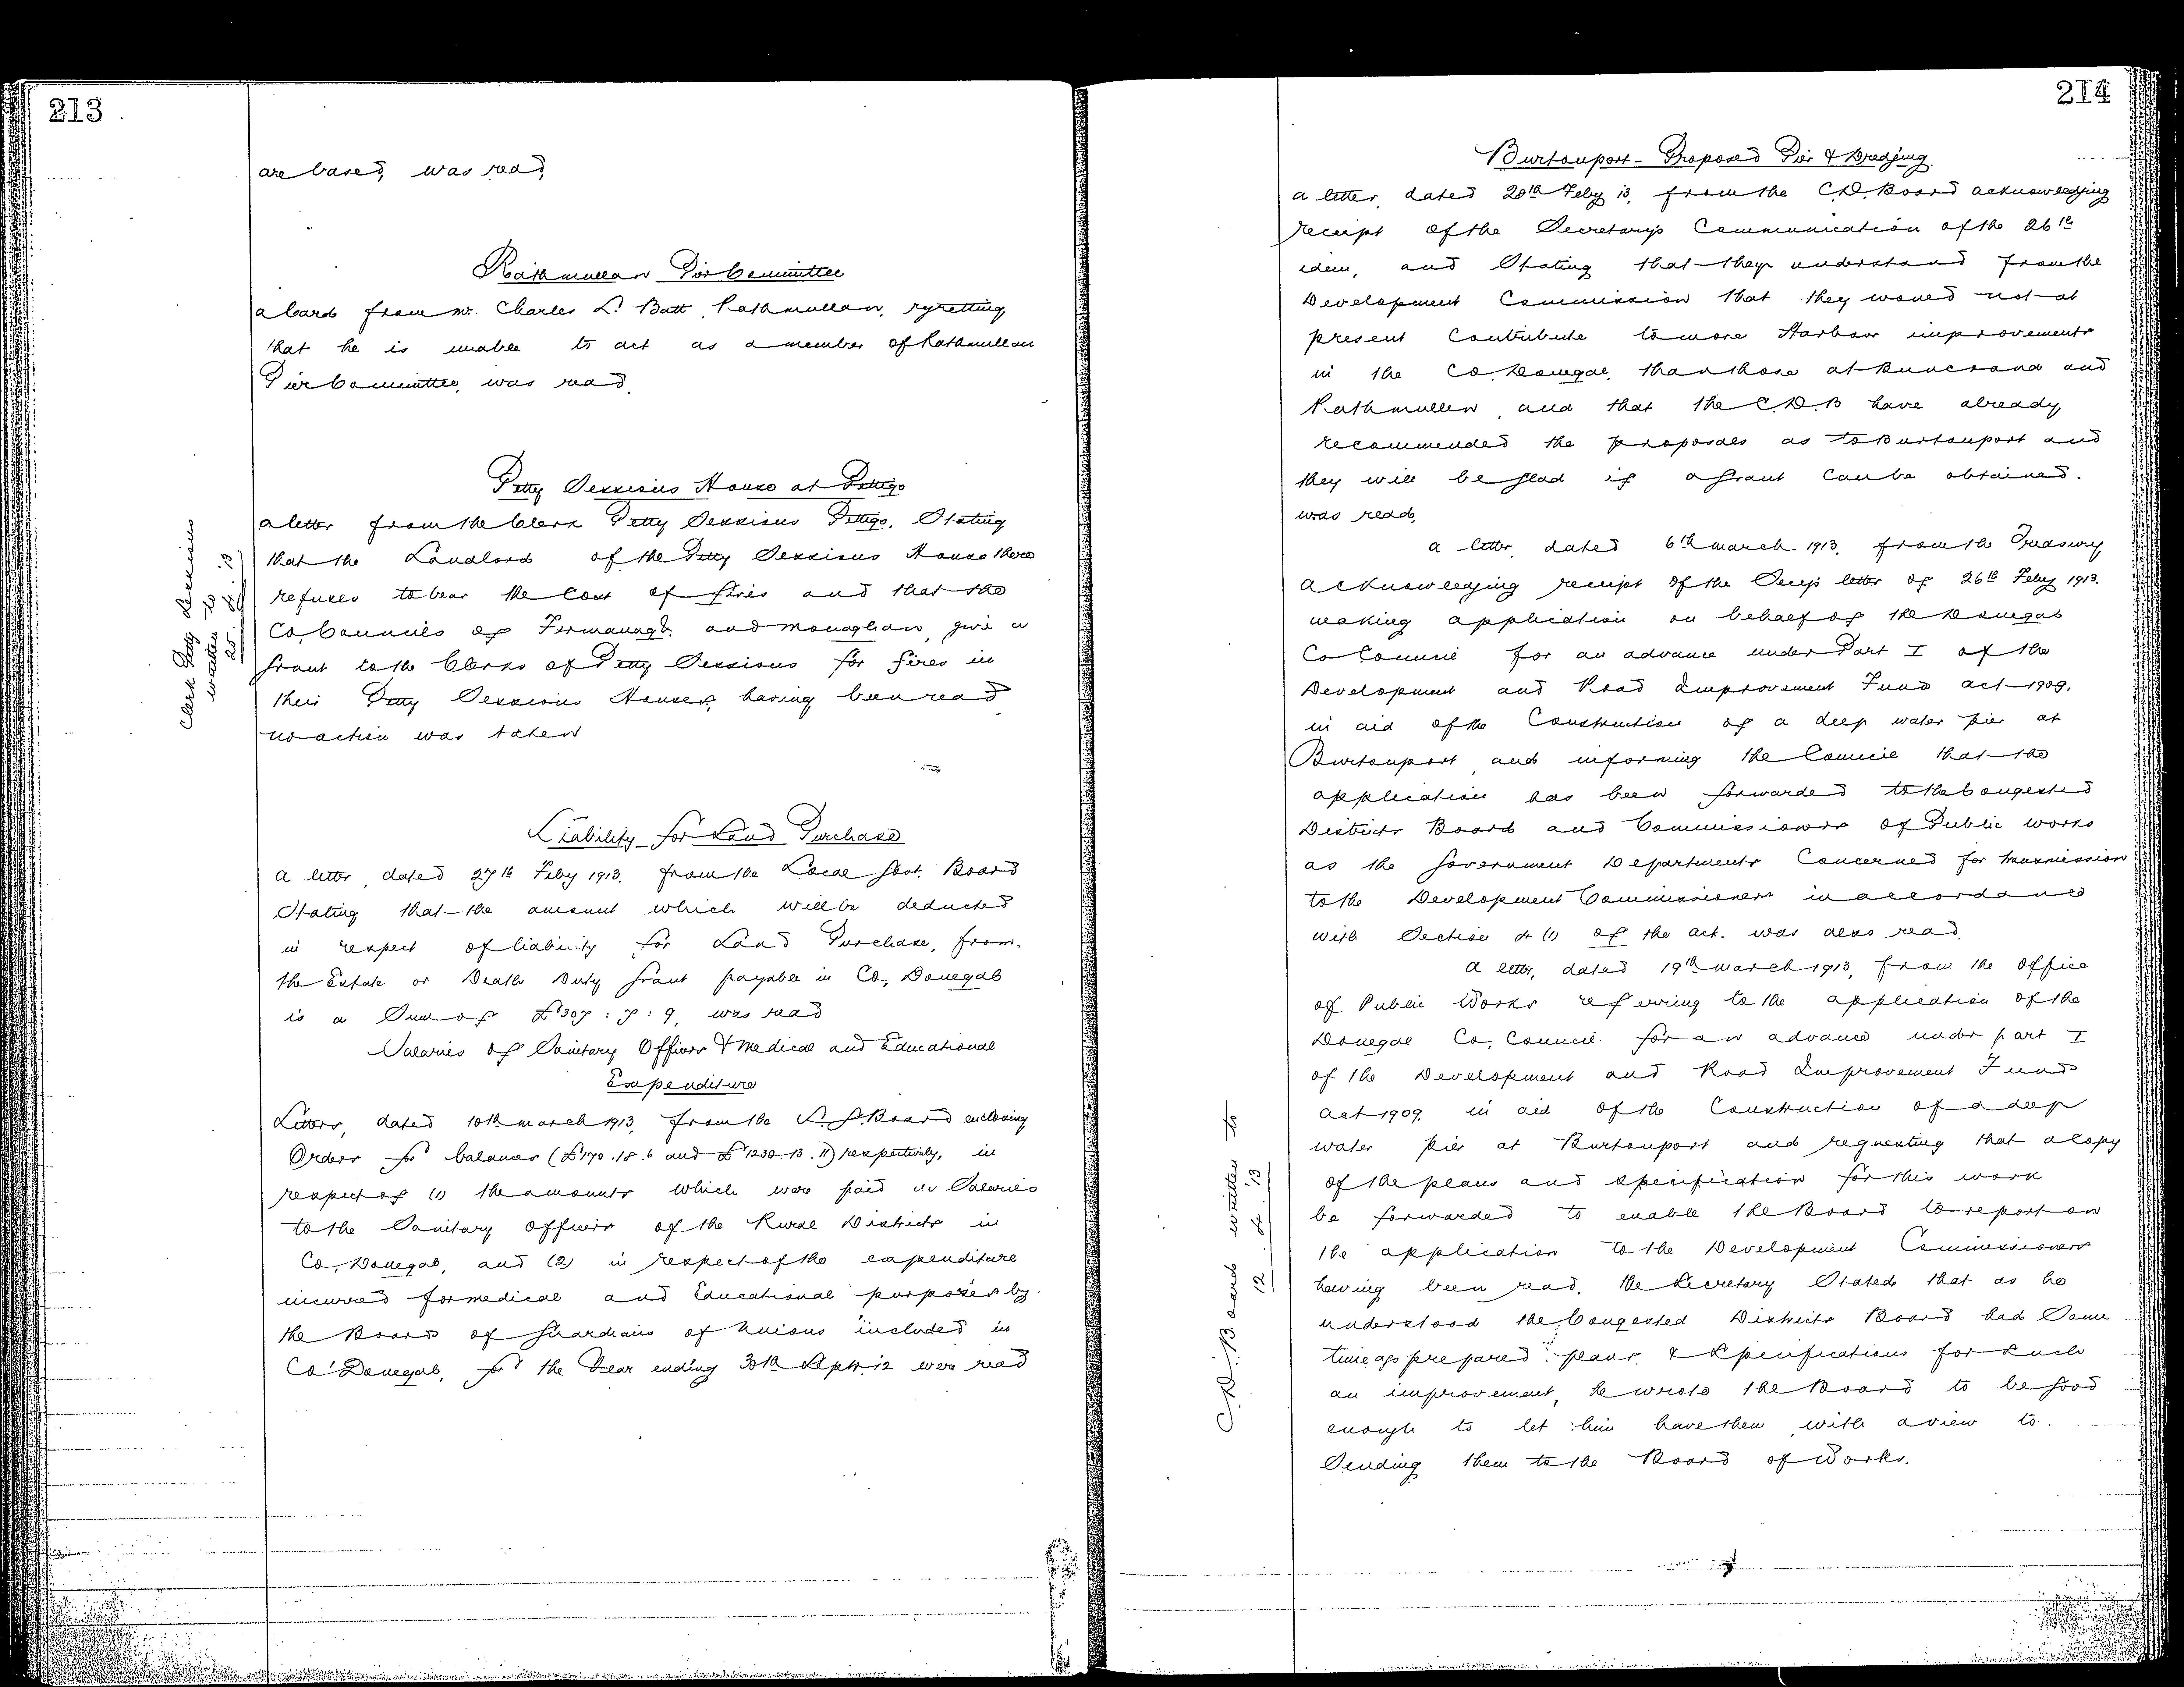 213
are based, was read,
Rathmullan Pier Committee
a Card from Mr. Charles L. Batt, Rathmullan, regretting
that he is unable to act as a member of Rathmullan
Pier Committee, was read.
Petty Sessions House at Pettigo
a letter from the Clerk Petty Sessions Pettigo, Stating
that the Landlord of the Petty Sessions House there
refuses to bear the Cost of fires and that the
Co, Councils of Fermanagh and Monaghan, give a
Grant to the Clerks of Petty Sessions for fires in
their Petty Sessions Houses, having been read
no action was taken
Clerk Petty Sessions
written to
25 . 4 . 13
Liability for Land Purchase
a letter, dated 27th Feby 1913. from the Local Govt. Board
Stating that the amount which will be deducted
in respect of liability for Land Purchase, from
the Estate or Death Duty Grant payable in Co, Donegal
is a Sum of £307 : 7 : 9, was read
Salaries of Sanitary Officers & Medical and Educational
Expenditure
Letters, dated 10th March 1913, from the L. G. Board enclosing
Orders for balances (£170 . 18 . 6 and £1230 . 13 . 11) respectively, in
respect of (1) the amounts which were paid as Salaries
to the Sanitary Officers of the Rural Districts in
Co, Donegal, and (2) in respect of the expenditure
incurred for medical and Educational purposes by
the Boards of Guardians of Unions included in
Co Donegal, for the Year ending 30th Sept. 12 were read
214
Burtonport - Proposed Pier & Dredging
a letter, dated 28th Feby 13, from the C. D. Board acknowledging
receipt of the Secretary's Communication of the 26th
idem, and Stating that they understand from the
Development Commission that they would not at
present Contribute to more Harbour improvements
in the Co, Donegal, than those at Buncrana and
Rathmullen, and that the C. D. B have already
recommended the proposals as to Burtonport and
they will be glad if a Grant Can be obtained.
was read,
a letter, dated 6th March 1913, from the Treasury
acknowledging receipt of the Secy's letter of 26th Feby 1913.
making application on behalf of the Donegal
Co Council for an advance under Part I of the
Development and Road Improvement Fund act 1909.
in aid of the Construction of a deep water pier at
Burtonport, and informing the Council that the
application has been forwarded to the Congested
Districts Board and Commissioners of Public works
as the Government Departments Concerned for transmission
to the Development Commissioners in accordance
with Section 4 (1) of the act. was also read.
a letter, dated 19th March 1913, from the office
of Public Works referring to the application of the
Donegal Co, Council for an advance under part I
of the Development and Road Improvement Fund
act 1909. in aid of the Construction of a deep
water pier at Burtonport and requesting that a Copy
of the plans and Specification for this work
be forwarded to enable the Board to report on
the application to the Development Commissioners
having been read. the Secretary Stated that as he
understood the Congested Districts Board had Some
time ago prepared plans & Specifications for Such
an improvement, he wrote the Board to be good
enough to let him have them, with a view to
Sending them to the Board of Works.
C. D. Board written to
12 . 4 . 13